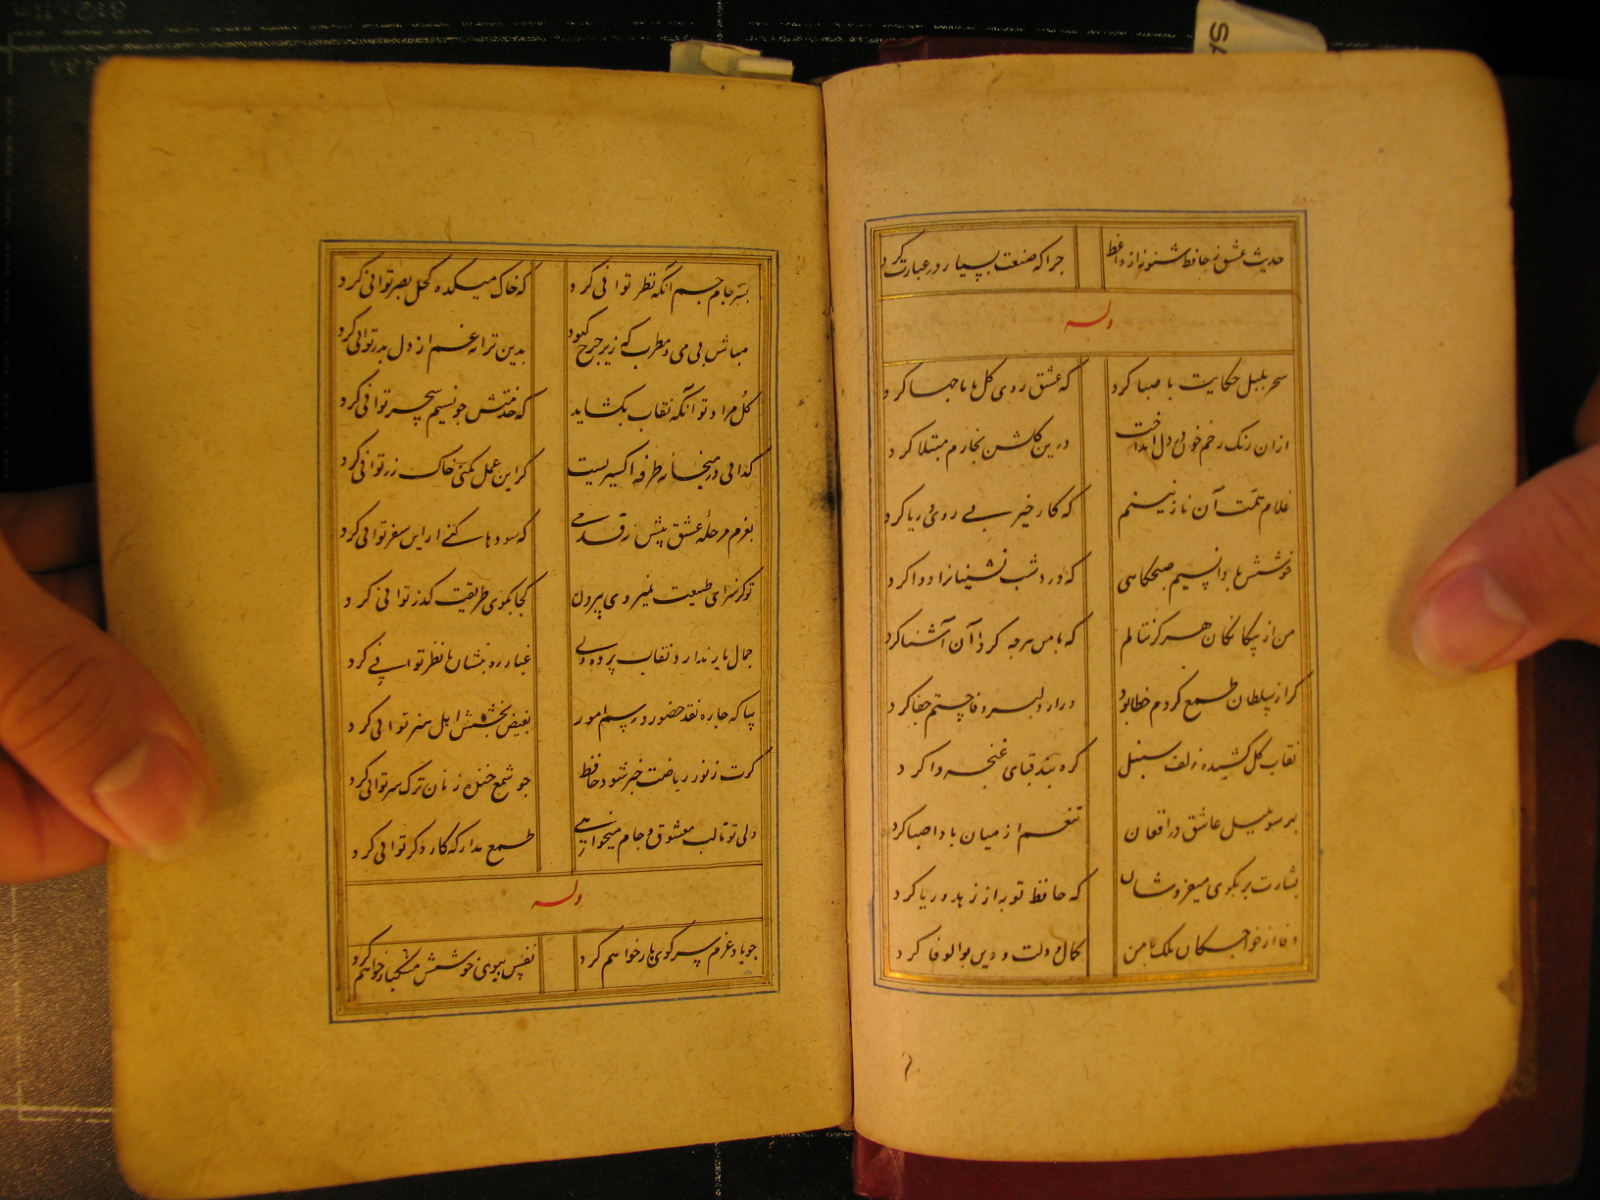 حدیث عشق ز حافظ شنو نه از واعظ چرا که صنعت بسیار در عبارت کرد
وله
سحر بلبل حکایت با صبا کرد که عشق روی گل با ما جها کرد
ازان رنک رخم خون در دل انداخت درین کلشن بخارم مبتلا کرد
غلام همت آن نازنینم که کار خیر بی روی و ریا کرد
خوشش باد آن نسیم صبحکاهی که درد شب نشینانرا دوا کرد
من از بیکانکان هرکز ننالم که با من هرجه کرد آن آشنا کرد
کر از سلطان طمع کردم خطا بود ور از دلبر وفا جستم جفا کرد
نقاب کل کشیده زلف سنبل کره بند قبای غنجه وا کرد
بهر سو بلبل عاشق در افغان تنعم از میان باد صبا کرد
بشارت بر بکوی میفروشان که حافظ توبه از زهد و ریا کرد
وفا از خواجکان ملک با من کمال دولت و دین بوالوفا کرد
بسر جام جم انکه نظر توانی کرد که خاک میکده کحل بصر توانی کرد
مباش بی می و مطرب که زیر جرخ کبود بدین ترانه غم از دل بدر توانی کرد
کل مراد تو آنکه نقاب بکشاید که خدمتش جو نسیم سحر توانی کرد
کدائی در میخانه طرفه اکسیریست کر این عمل بکنی خاک زر توانی کرد
بعزم مرحله عشق پیش نه قدمی که سودها کنی ار این سفر توانی کرد
تو کز سرای طبیعت نمیروی بیرون کجا بکوی طریقت کذر توانی کرد
جمال یار ندارد نقاب و پرده ولی غبار ره بنشان تا نظر توانی کرد
بیا که جاره نقد حضور و رسم امور بفیض بخشش اهل هنر توانی کرد
کرت ز نور ریاضت خبر شود حافظ جو شمع خنده زنان ترک سر توانی کرد
ولی تو تا لب معشوق و جام میخواهی طمع مدار که کار دکر توانی کرد
وله
جو باد عزم سر کوی یار خواهم کرد نفس ببوی خوشش مشکبار خواهم کرد